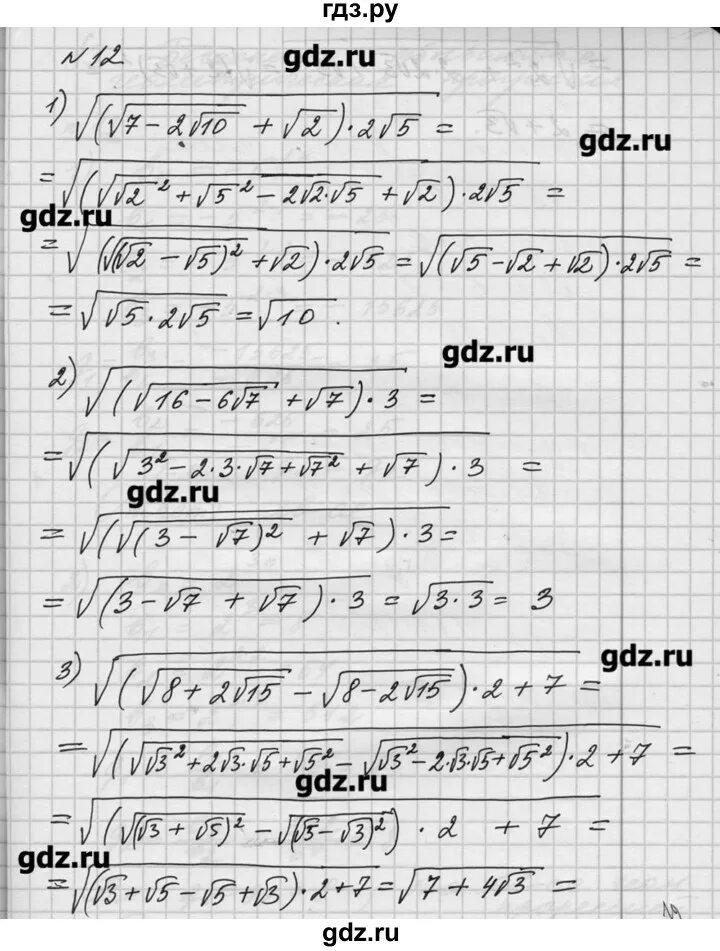 гдз.ру
№12
gdz.ru
1) √((√(7 - 2√10) + √2)·2√5) =
gdz.ru
= √((√(√2² + √5² - 2√2·√5) + √2)·2√5) =
gdz.ru
= √((√((√2 - √5)²) + √2)·2√5) = √((√5 - √2 + √2)·2√5) =
= √(√5·2√5) = √10.
gdz.ru
2) √((√(16 - 6√7) + √7)·3) =
= √((√(3² - 2·3·√7 + √7²) + √7)·3) =
gdz.ru
= √((√((3 - √7)²) + √7)·3) =
= √((3 - √7 + √7)·3) = √(3·3) = 3
gdz.ru
3) √((√(8 + 2√15) - √(8 - 2√15))·2 + 7) =
= √((√(√3² + 2√3·√5 + √5²) - √(√3² - 2·√3·√5 + √5²))·2 + 7) =
gdz.ru
= √((√((√3 + √5)²) - √((√5 - √3)²))·2 + 7) =
gdz.ru
= √((√3 + √5 - √5 + √3)·2 + 7) = √(7 + 4√3) =
19
gdz.ru